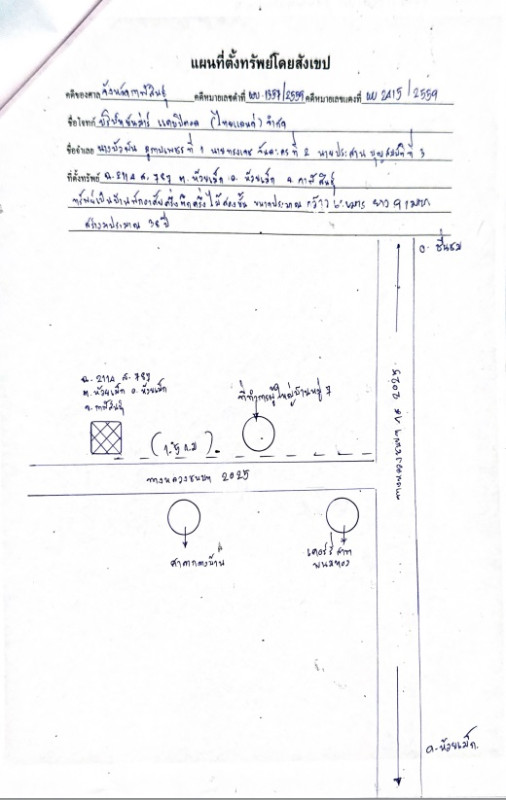 แผนที่ตั้งทรัพย์โดยสังเขป
คดีของศาล จังหวัดกาฬสินธุ์ คดีหมายเลขดำที่ ผบ.1357/2559 คดีหมายเลขแดงที่ ผบ 2415/2559
ชื่อโจทก์ บริษัท แคปปิตอล (ไทยแลนด์) จำกัด
ชื่อจำเลย นางบัวผัน ที่ 1 นาย ที่ 2 นายประสาน ที่ 3
ที่ตั้งทรัพย์ ฉ. 2114 ส. 787 ต. ห้วยเม็ก อ. ห้วยเม็ก จ. กาฬสินธุ์
ทรัพย์เป็นบ้านพักอาศัยครึ่งตึกครึ่งไม้สองชั้น ขนาดประมาณ กว้าง เมตร ยาว 9 เมตร
สร้างมาประมาณ 38 ปี
อ. ชื่นชม
ฉ. 2114 ส. 787
ต. ห้วยเม็ก อ. ห้วยเม็ก
จ. กาฬสินธุ์
ที่ทำการผู้ใหญ่บ้านหมู่ 7
(1.5 ก.ม)
ทางหลวงชนบท 2025
ทางหลวงชนบท 2025
ศาลากลางบ้าน
อ. ห้วยเม็ก